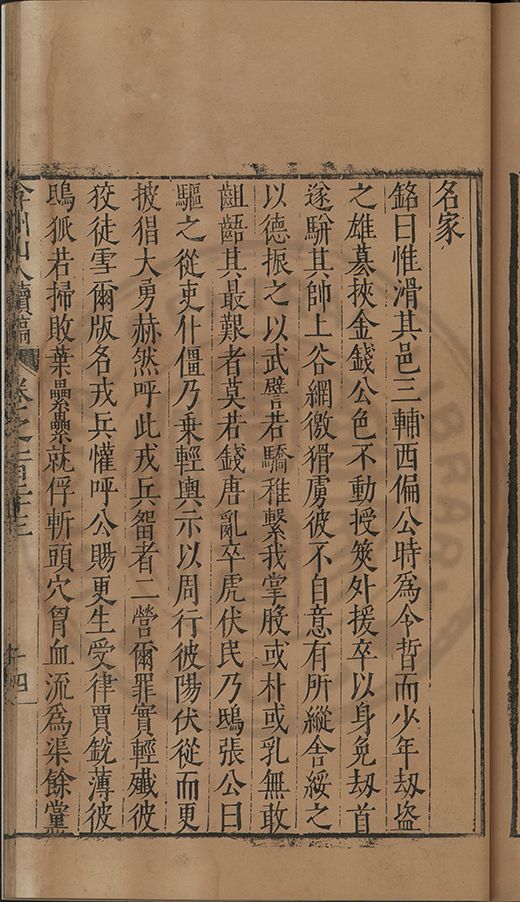 名家
銘曰惟滑其邑三輔西偏公時為令晢而少年刼盗
之雄墓挾金錢公色不動授筴外援卒以身免刼首
遂駢其帥上谷網徼猾虜彼不自意有所縱舍綏之
以德振之以武譬若驕稚繫我掌股或朴或乳無敢
齟齬其最艱者莫若錢唐亂卒虎伏民乃鴟張公曰
驅之從吏什僵乃乗輕輿示以周行彼陽伏從而更
披猖大勇赫然呼此戎兵曶者二營爾罪實輕殱彼
狡徒雪爾版名戎兵懽呼公賜更生受律賈銳薄彼
鴟狐若掃敗葉纍纍就俘斬頭穴胷血流為渠餘黨
弇州山人續稿 卷之一百三十三 十四